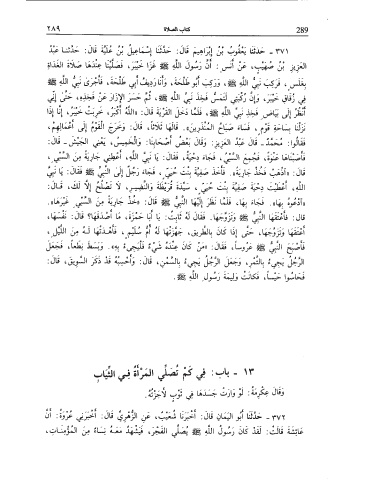 ٢٨٩ كتاب الصلاة 289
٣٧١ - حَدَّثَنَا يَعْقُوبُ بْنُ إِبْرَاهِيمَ قَالَ: حَدَّثَنَا إِسْمَاعِيلُ بْنُ عُلَيَّةَ قَالَ: حَدَّثَنَا عَبْدُ
الْعَزِيزِ بْنُ صُهَيْبٍ، عَنْ أَنَسٍ: أَنَّ رَسُولَ اللهِ ﷺ غَزَا خَيْبَرَ، فَصَلَّيْنَا عِنْدَهَا صَلَاةَ الغَدَاةِ
بِغَلَسٍ، فَرَكِبَ نَبِيُّ اللهِ ﷺ، وَرَكِبَ أَبُو طَلْحَةَ، وَأَنَا رَدِيفُ أَبِي طَلْحَةَ، فَأَجْرَى نَبِيُّ اللهِ ﷺ
فِي زُقَاقِ خَيْبَرَ، وَإِنَّ رُكْبَتِي لَتَمَسُّ فَخِذَ نَبِيِّ اللهِ ﷺ، ثُمَّ حَسَرَ الإِزَارَ عَنْ فَخِذِهِ، حَتَّى إِنِّي
أَنْظُرُ إِلَى بَيَاضِ فَخِذِ نَبِيِّ اللهِ ﷺ، فَلَمَّا دَخَلَ القَرْيَةَ قَالَ: «اللهُ أَكْبَرُ، خَرِبَتْ خَيْبَرُ، إِنَّا إِذَا
نَزَلْنَا بِسَاحَةِ قَوْمٍ، فَسَاءَ صَبَاحُ المُنْذَرِينَ». قَالَهَا ثَلَاثًا، قَالَ: وَخَرَجَ القَوْمُ إِلَى أَعْمَالِهِمْ،
فَقَالُوا: مُحَمَّدٌ - قَالَ عَبْدُ العَزِيزِ: وَقَالَ بَعْضُ أَصْحَابِنَا: وَالخَمِيسُ، يَعْنِي الجَيْشَ - قَالَ:
فَأَصَبْنَاهَا عَنْوَةً، فَجُمِعَ السَّبْيُ، فَجَاءَ دِحْيَةُ، فَقَالَ: يَا نَبِيَّ اللهِ، أَعْطِنِي جَارِيَةً مِنَ السَّبْيِ،
قَالَ: «اذْهَبْ فَخُذْ جَارِيَةً». فَأَخَذَ صَفِيَّةَ بِنْتَ حُيَيٍّ، فَجَاءَ رَجُلٌ إِلَى النَّبِيِّ ﷺ فَقَالَ: يَا نَبِيَّ
اللهِ، أَعْطَيْتَ دِحْيَةَ صَفِيَّةَ بِنْتَ حُيَيٍّ، سَيِّدَةَ قُرَيْظَةَ وَالنَّضِيرِ، لَا تَصْلُحُ إِلَّا لَكَ، قَالَ:
«ادْعُوهُ بِهَا». فَجَاءَ بِهَا، فَلَمَّا نَظَرَ إِلَيْهَا النَّبِيُّ ﷺ قَالَ: «خُذْ جَارِيَةً مِنَ السَّبْيِ غَيْرَهَا».
قَالَ: فَأَعْتَقَهَا النَّبِيُّ ﷺ وَتَزَوَّجَهَا. فَقَالَ لَهُ ثَابِتٌ: يَا أَبَا حَمْزَةَ، مَا أَصْدَقَهَا؟ قَالَ: نَفْسَهَا،
أَعْتَقَهَا وَتَزَوَّجَهَا، حَتَّى إِذَا كَانَ بِالطَّرِيقِ، جَهَّزَتْهَا لَهُ أُمُّ سُلَيْمٍ، فَأَهْدَتْهَا لَهُ مِنَ اللَّيْلِ،
فَأَصْبَحَ النَّبِيُّ ﷺ عَرُوسًا، فَقَالَ: «مَنْ كَانَ عِنْدَهُ شَيْءٌ فَلْيَجِئْ بِهِ». وَبَسَطَ نِطَعًا، فَجَعَلَ
الرَّجُلُ يَجِيءُ بِالتَّمْرِ، وَجَعَلَ الرَّجُلُ يَجِيءُ بِالسَّمْنِ، قَالَ: وَأَحْسِبُهُ قَدْ ذَكَرَ السَّوِيقَ، قَالَ:
فَحَاسُوا حَيْسًا، فَكَانَتْ وَلِيمَةَ رَسُولِ اللهِ ﷺ.
١٣ - باب: فِي كَمْ تُصَلِّي المَرْأَةُ فِي الثِّيَابِ
وَقَالَ عِكْرِمَةُ: لَوْ وَارَتْ جَسَدَهَا فِي ثَوْبٍ لَأَجَزْتُهُ.
٣٧٢ - حَدَّثَنَا أَبُو اليَمَانِ قَالَ: أَخْبَرَنَا شُعَيْبٌ، عَنِ الزُّهْرِيِّ قَالَ: أَخْبَرَنِي عُرْوَةُ: أَنَّ
عَائِشَةَ قَالَتْ: لَقَدْ كَانَ رَسُولُ اللهِ ﷺ يُصَلِّي الفَجْرَ، فَيَشْهَدُ مَعَهُ نِسَاءٌ مِنَ المُؤْمِنَاتِ،